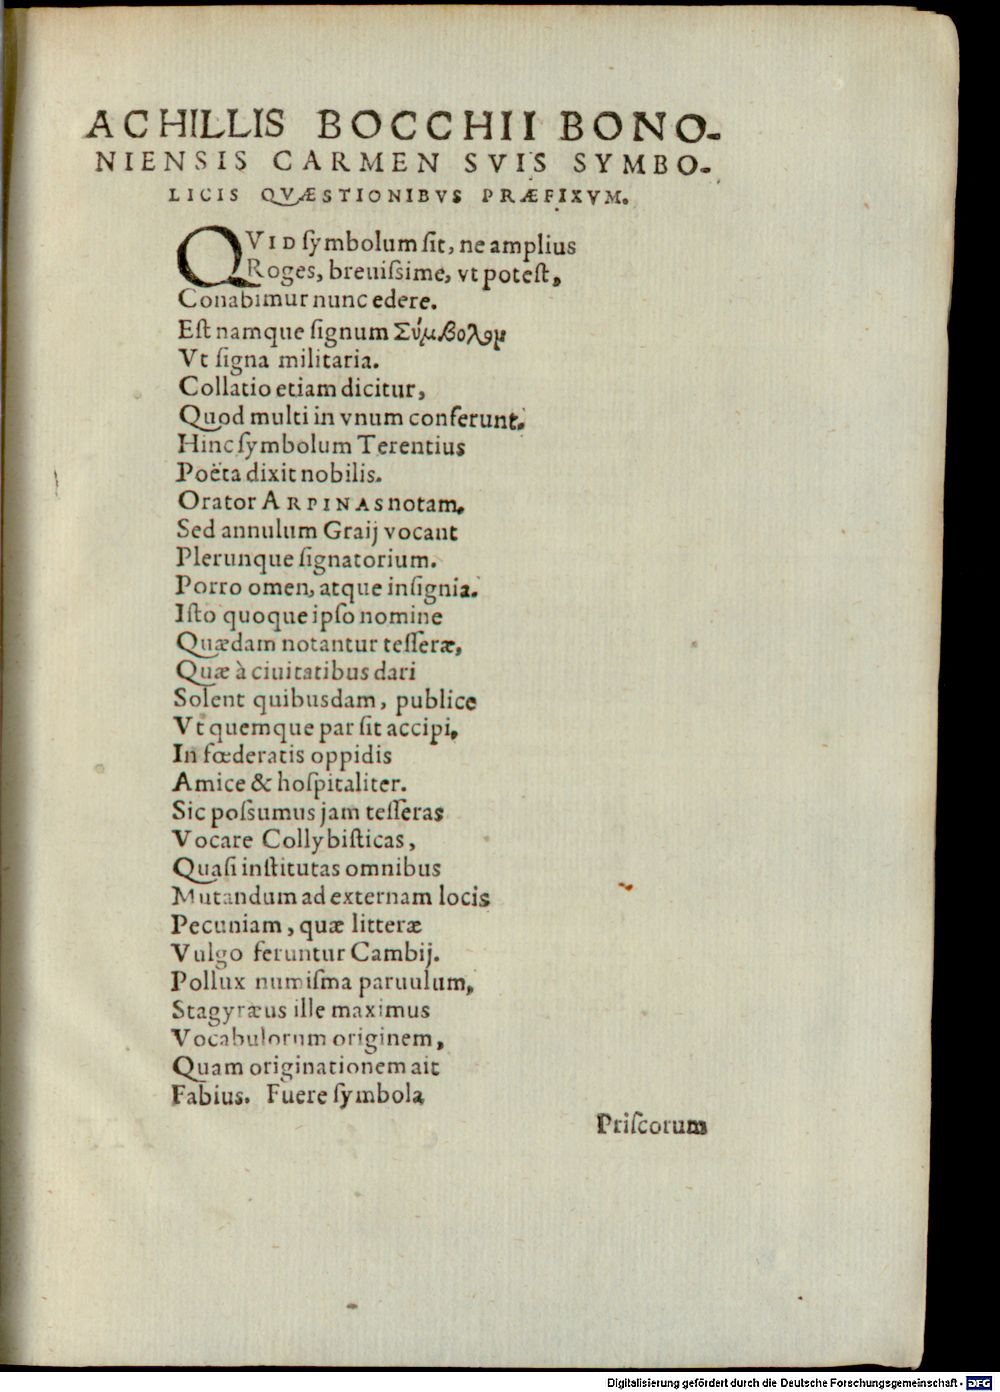 ACHILLIS BOCCHII BONO-
NIENSIS CARMEN SVIS SYMBO-
LICIS QVÆSTIONIBVS PRÆFIXVM.
QVID ſymbolum ſit, ne amplius
Roges, breuiſsime, vt poteſt,
Conabimur nunc edere.
Eſt namque ſignum Σύμβολομ
Vt ſigna militaria.
Collatio etiam dicitur,
Quod multi in vnum conferunt.
Hinc ſymbolum Terentius
Poëta dixit nobilis.
Orator ARPINAS notam.
Sed annulum Graij vocant
Plerunque ſignatorium.
Porro omen, atque inſignia.
Iſto quoque ipſo nomine
Quædam notantur teſſeræ,
Quæ à ciuitatibus dari
Solent quibusdam, publice
Vt quemque par ſit accipi,
In fœderatis oppidis
Amice & hoſpitaliter.
Sic poſsumus jam teſſeras
Vocare Collybiſticas,
Quaſi inſtitutas omnibus
Mutandum ad externam locis
Pecuniam, quæ litteræ
Vulgo feruntur Cambij.
Pollux numiſma paruulum,
Stagyræus ille maximus
Vocabulorum originem,
Quam originationem ait
Fabius. Fuere ſymbola
Priſcorum
Digitalisierung gefördert durch die Deutsche Forschungsgemeinschaft - DFG